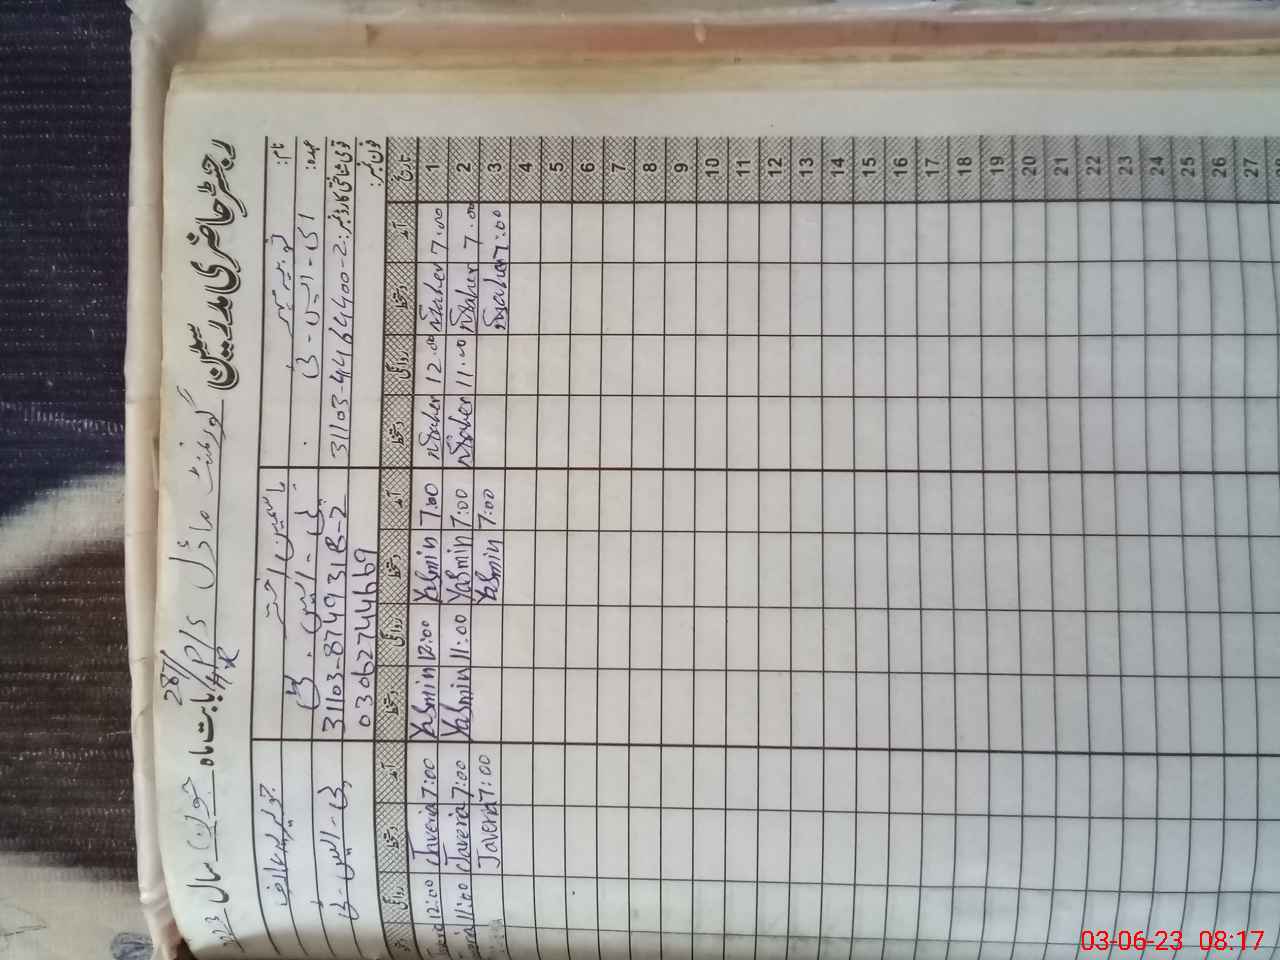 رجسٹر حاضری مدرسین گورنمنٹ ماڈل P/S بابت ماہ جون سال 2023
287
نام:
عہدہ: ای - ایس - ٹی
قومی شناختی کارڈ نمبر: 31103-4464400-2
فون نمبر:
یاسمین اختر
ای - ایس - ٹی
31103-8749318-2
03062744669
جویریہ عارف
ای - ایس - ٹی
تاریخ آمد دستخط روانگی دستخط آمد دستخط روانگی دستخط آمد دستخط روانگی
1 7:00 12:00 7:00 Yasmin 12:00 Yasmin 7:00 Javeria 12:00
2 7:00 11:00 7:00 Yasmin 11:00 Yasmin 7:00 Javeria 11:00
3 7:00 7:00 Yasmin 7:00 Javeria
4
5
6
7
8
9
10
11
12
13
14
15
16
17
18
19
20
21
22
23
24
25
26
27
03-06-23 08:17